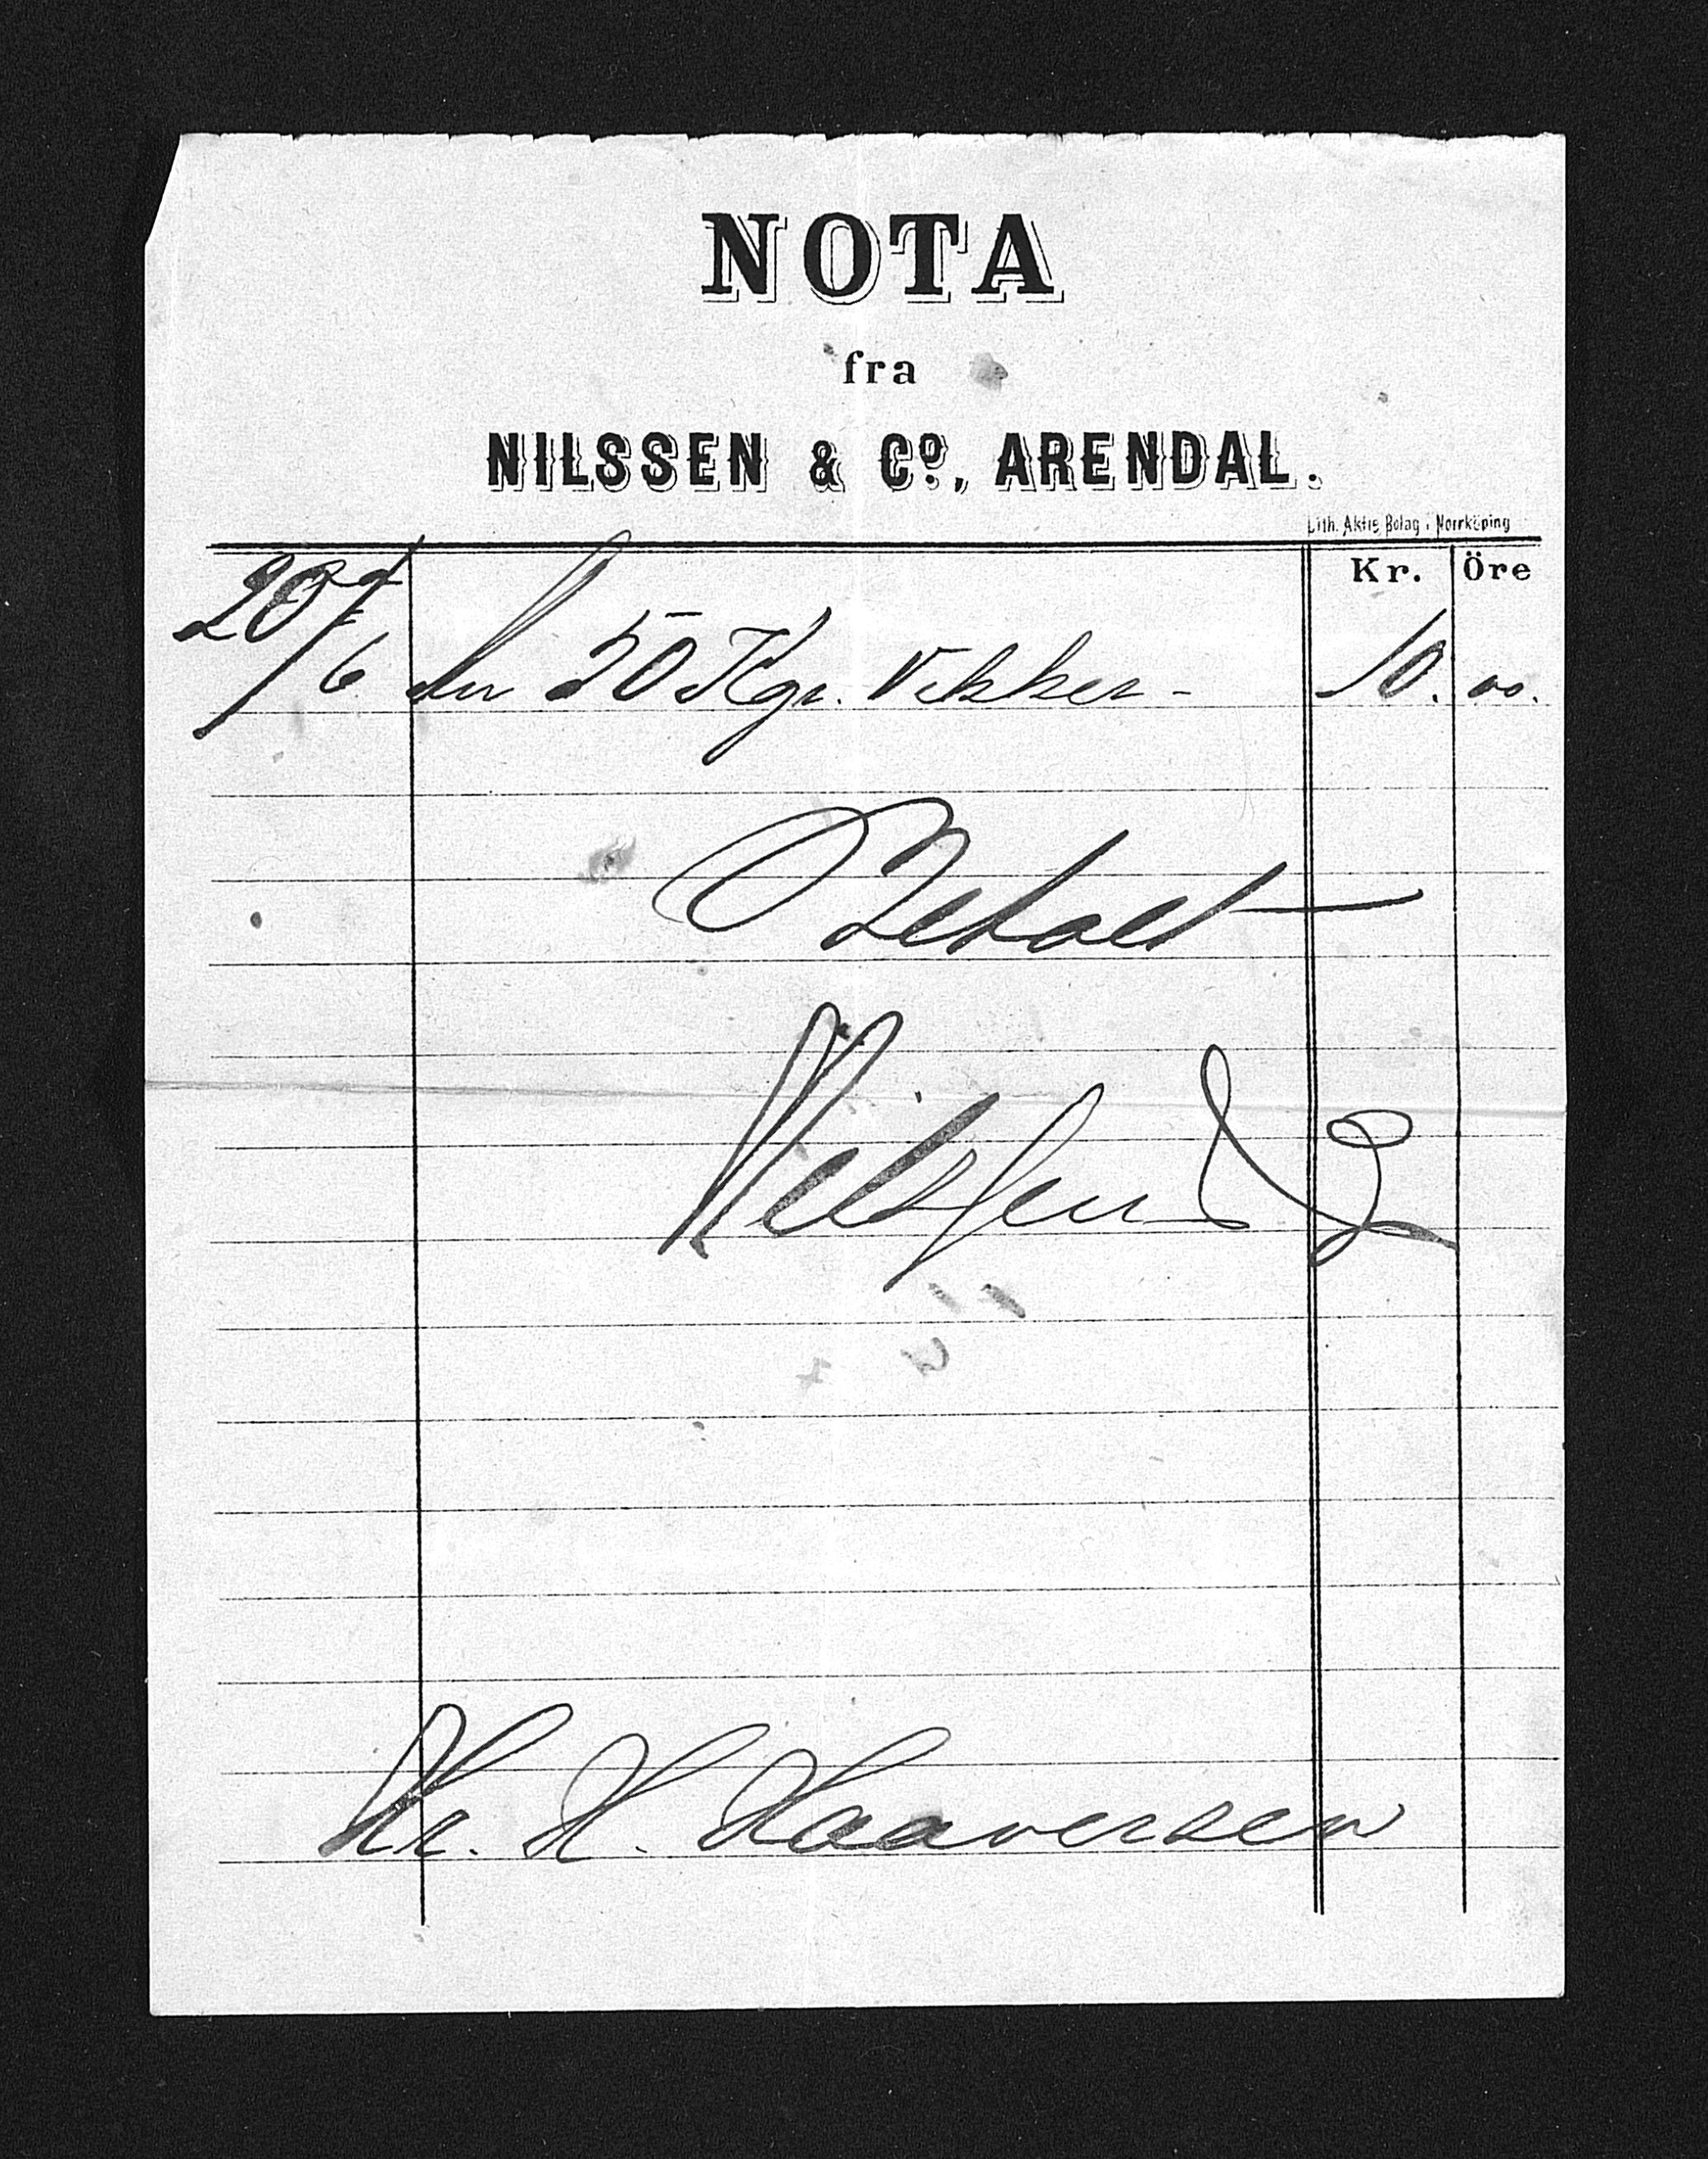 NOTA
fra
NILSSEN & Co., ARENDAL.
Lith. Aktie Bolag i Norrköping
Kr. Öre
20/6 50 Kgr. Vikker - 10. 00.
Betalt
Nilssen & Co
Hr. H. Haaversen